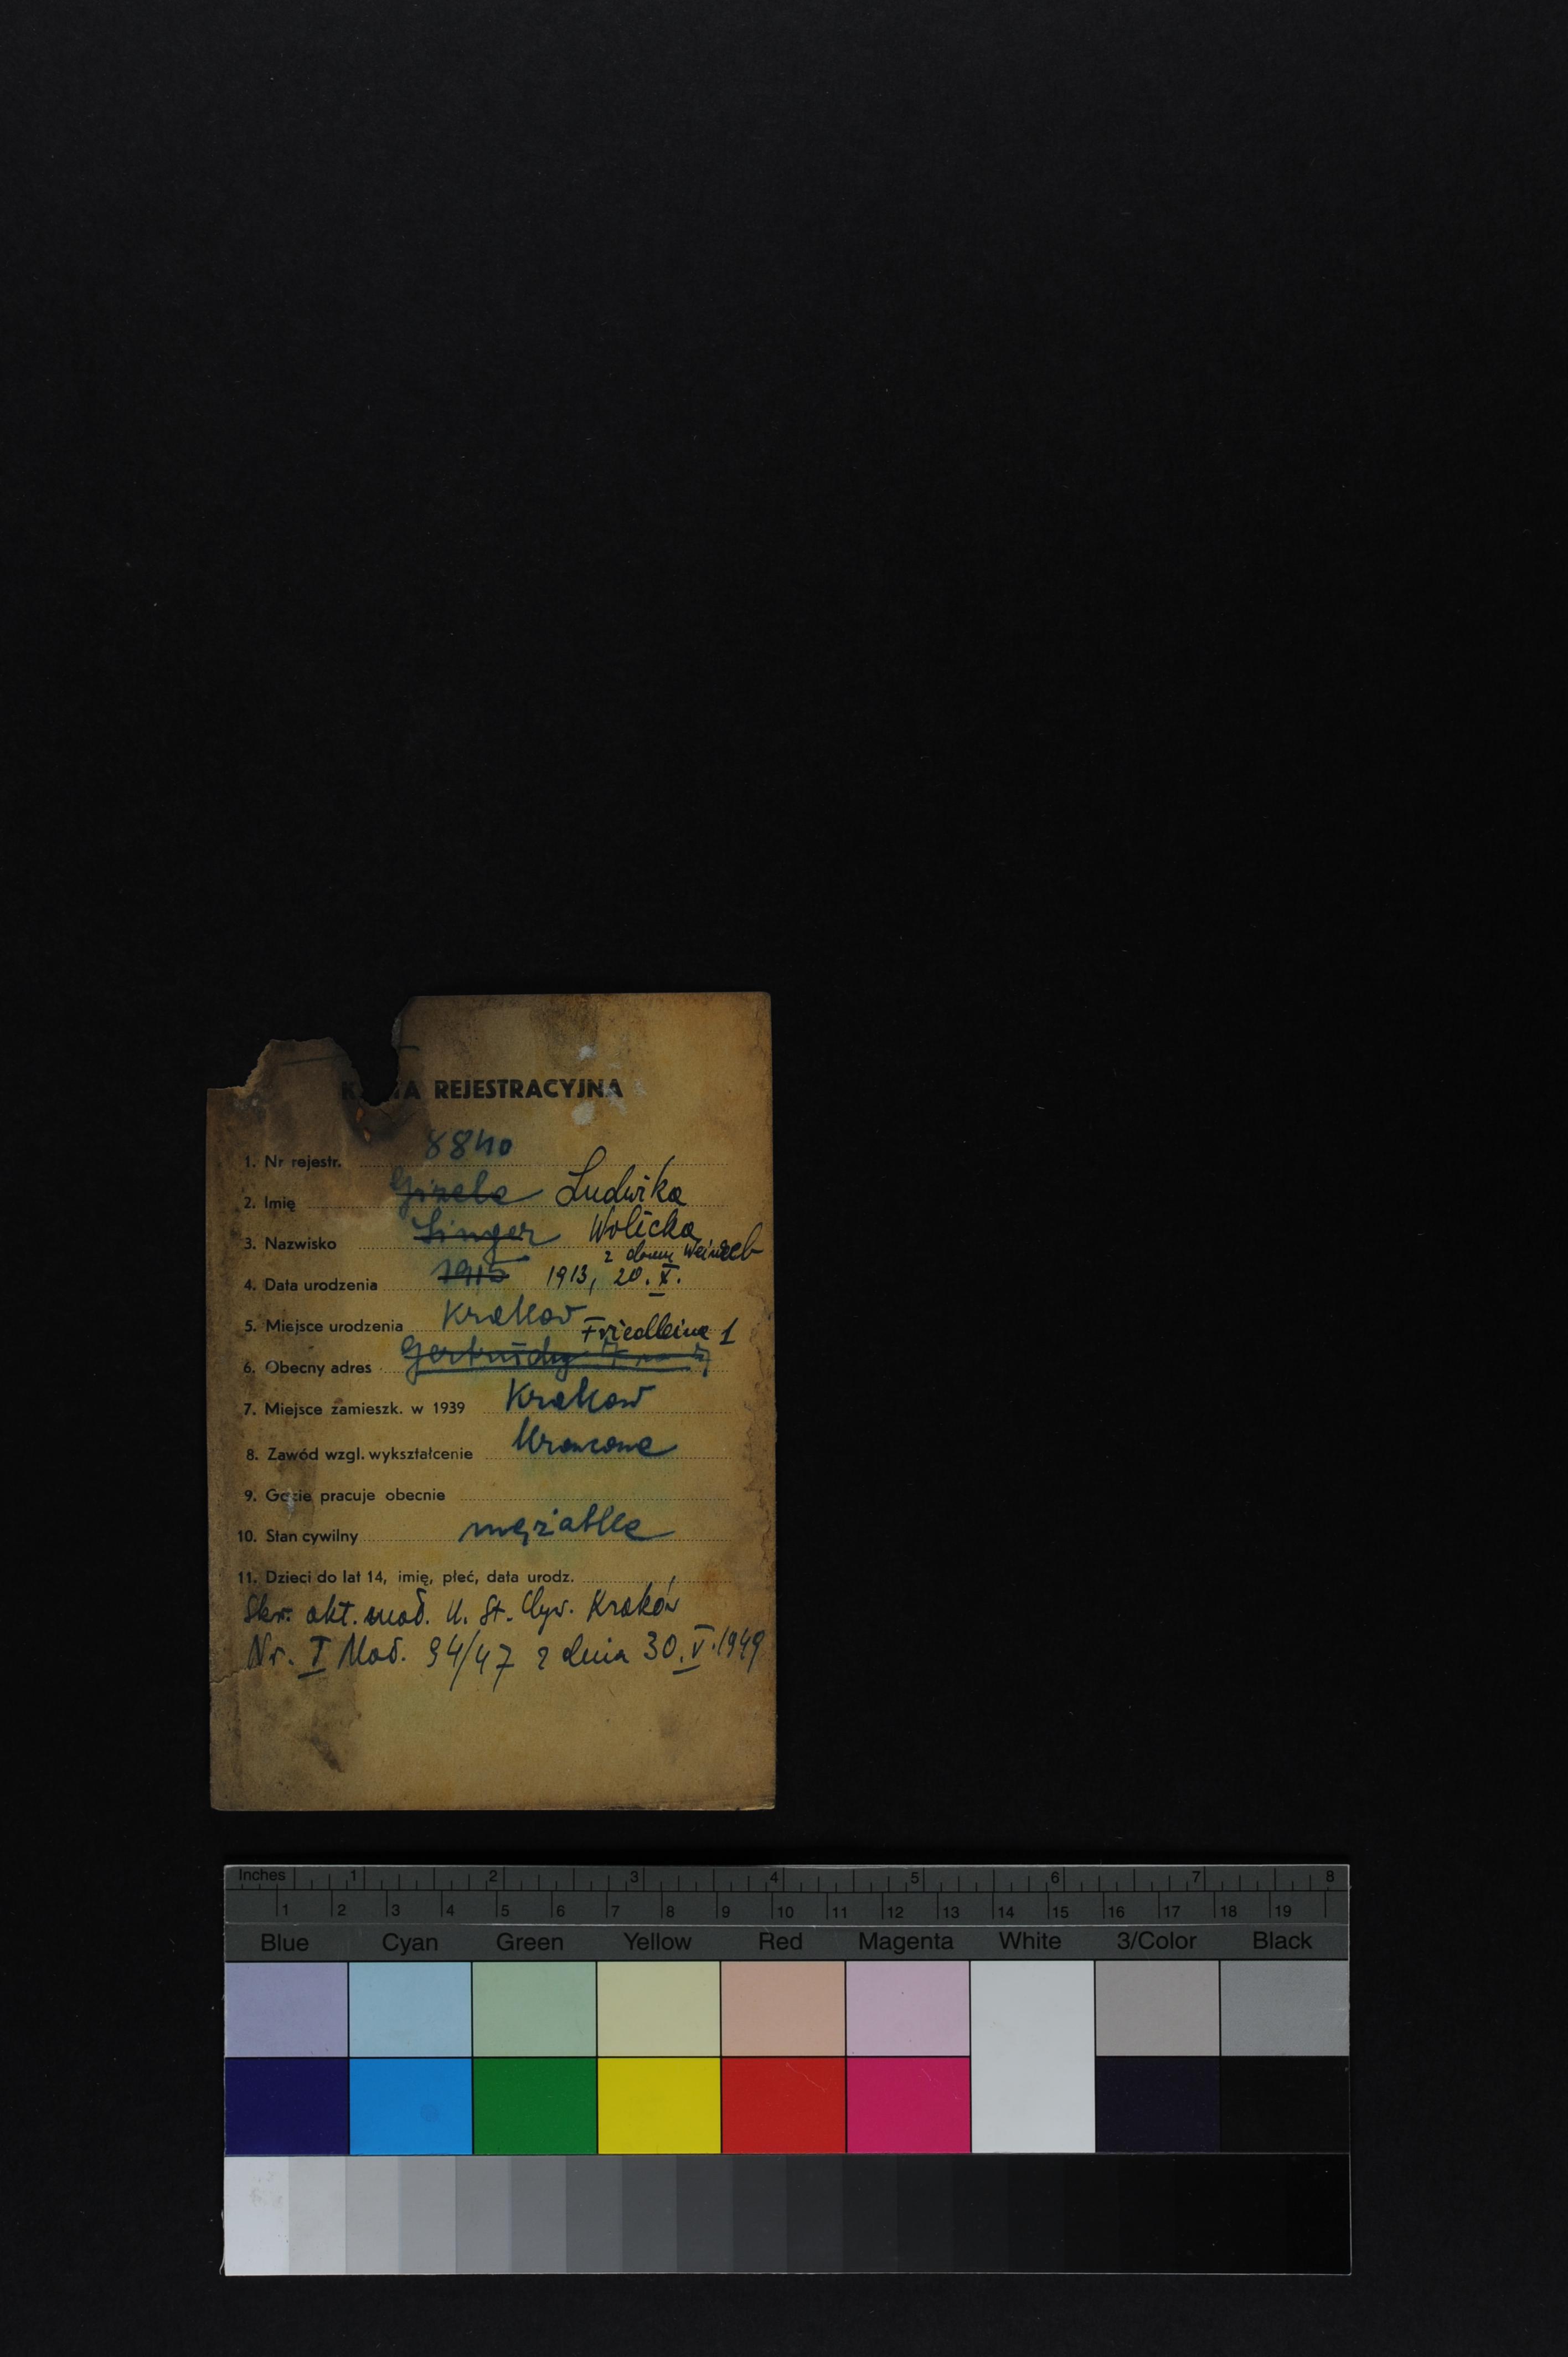 KARTA REJESTRACYJNA
1. Nr rejestr. 8840
2. Imię Gizela Ludwika
3. Nazwisko Singer Wolicka
z domu Weinreb
4. Data urodzenia 1915 1913, 20.X.
5. Miejsce urodzenia Krakow
Friedleina 1
6. Obecny adres Gertrudy
7. Miejsce zamieszk. w 1939 Krakow
8. Zawód wzgl. wykształcenie
9. Gdzie pracuje obecnie
10. Stan cywilny mężatka
11. Dzieci do lat 14, imię, płeć, data urodz.
Skr. akt. małż. U. St. Cyw. Kraków
Nr. I Małż. 94/47 z dnia 30.V.1949
Inches 1 2 3 4 5 6 7 8
1 2 3 4 5 6 7 8 9 10 11 12 13 14 15 16 17 18 19
Blue Cyan Green Yellow Red Magenta White 3/Color Black